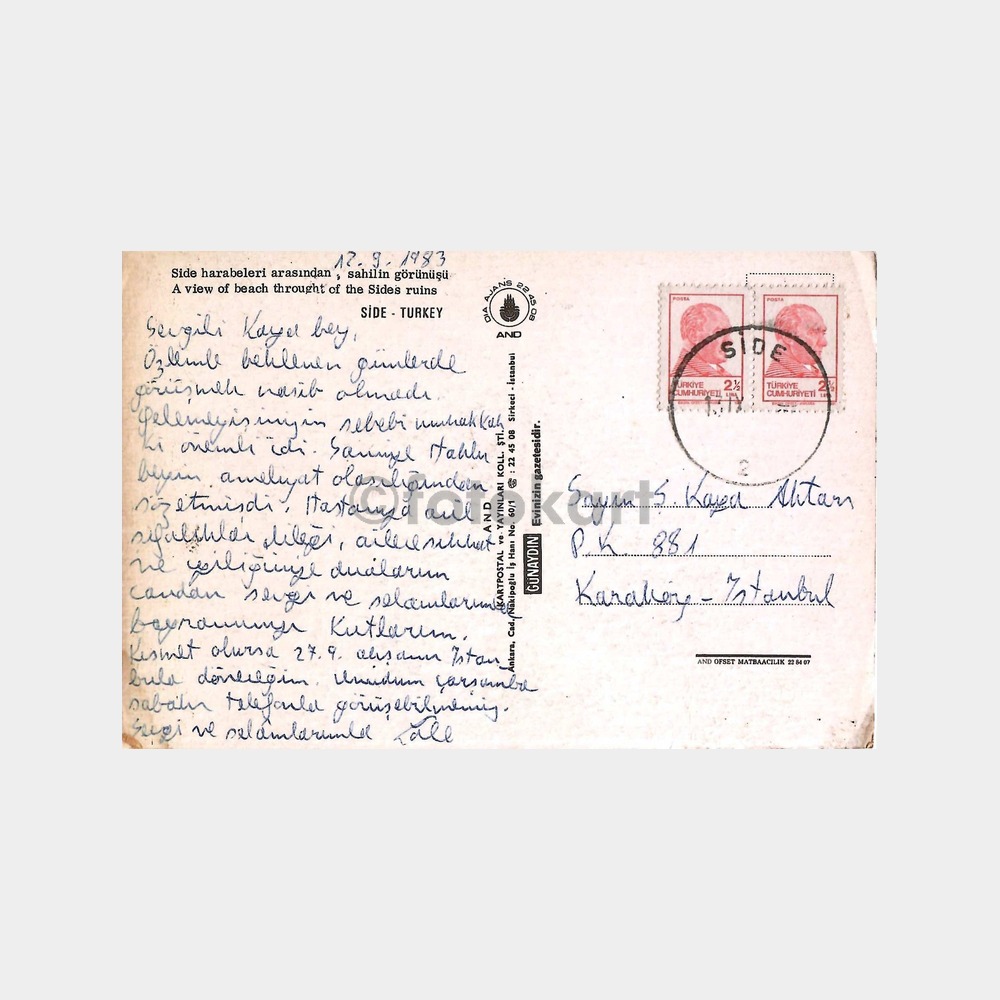 12.9.1983
Side harabeleri arasından, sahilin görünüşü
A view of beach throught of the Sides ruins
SİDE - TURKEY
Sevgili Kaya bey,
Özlemle beklenen günlerde
görüşmek nasib olmadı.
Gelemeyişimin sebebi muhakkak
ki önemli idi.
beyin ameliyat olacağından
sözetmişdi. Hastanıza acil
şifalıklar dileği, ailece sıhhat
ve iyiliğinize dualarım
candan sevgi ve selamlarımla
bayramınızı kutlarım.
Kısmet olursa 27.9. akşamı İstan
bula döneceğim. Umudum çarşamba
sabahı telefonla görüşebilmemiz.
Sevgi ve selâmlarımla Lâle
DIA AJANS 22 45 08
AND
AND
KARTPOSTAL ve YAYINLARI KOLL. ŞTİ.
Ankara, Cad. Nakipoğlu İş Hanı No. 60/1 : 22 45 08 Sirkeci İstanbul
GÜNAYDIN Evinizin gazetesidir.
POSTA
TÜRKİYE
CUMHURİYETİ
2½
LİRA
POSTA
TÜRKİYE
CUMHURİYETİ
2½
SİDE
2
Sayın S. Kaya Aktan
P.K 881
Karaköy - İstanbul
AND OFSET MATBAACILIK 22 84 07
©fotokart